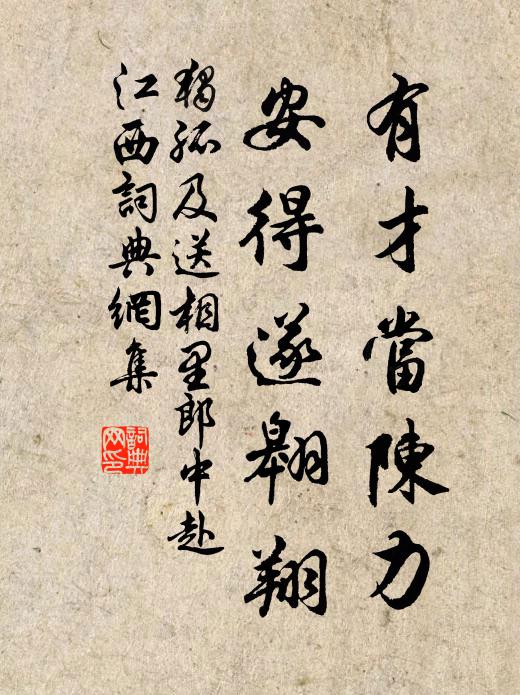 有才當陳力
安得遂翱翔
獨孤及送相里郎中赴
江西詞典網集
詞典网印